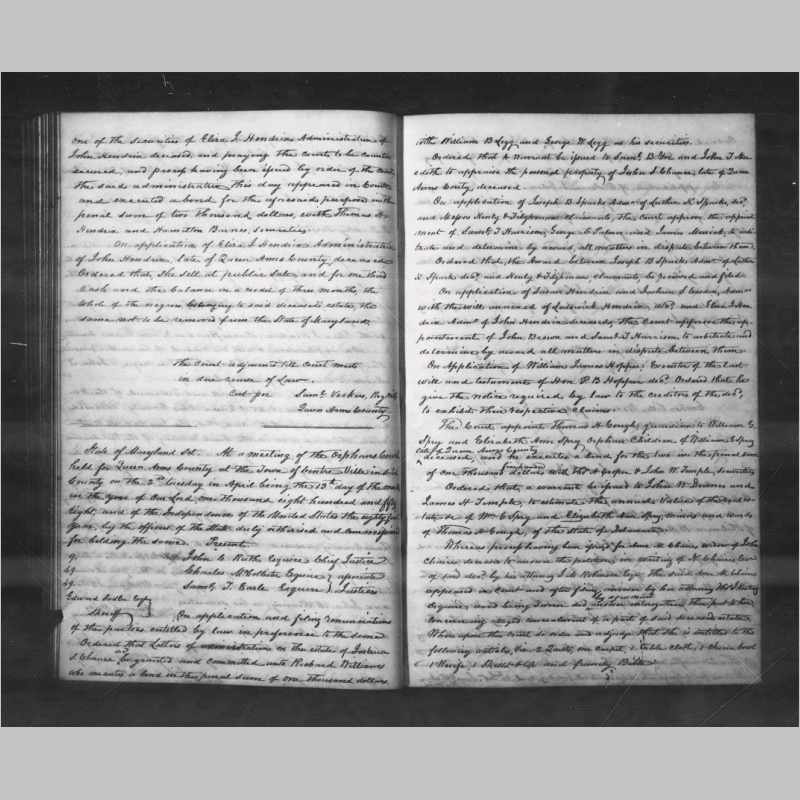 one of the securities of Eliza J. Hendrix Administratrix of
John Hendrix deceased, and praying the court to be counter
secured, and process having been issued by order of the court
the said administratrix this day appeared in Court
and executed a bond for the aforesaid purpose in the
penal sum of two thousand dollars, with Thomas H.
Hendrix and Hamilton Barnes, securities
On application of Eliza J Hendrix Administratrix
of John Hendrix, late of Queen Anns County, deceased
Ordered that, she sell at public sale, and for one third
Cash and the balance in a credit of three months, the
whole of the negroes belonging to said deceased estate, the
same not to be removed from the State of Maryland,
The Court adjourned till Court meets
in due course of Law.
Test per Saml. Reg Wills
Queen Anns County
State of Maryland Sct. At a meeting of the Orphans Court
held for Queen Anns County at the Town of Centre Ville in said
County on the 2d tuesday in April being the 13th day of the month
in the year of Our Lord one thousand eight hundred and fifty
eight, and of the Independence of the United States the eighty
year, by the officers of the State duly authorised and
for holding the same. Present
John C Ruth Esquire Chief Justice
Charles McCollister Esquire associate
Saml. T. Earle Esquire Justices
Edward Esqr
Sheriff
On application and filing renunciations
of the parties entitled by law in preference to the same
Ordered that Letters of administration on the estate of
S Chance be granted and committed unto Richard Williams
who executes a bond in the penal sum of one thousand dollars
with William B Legg and George W Legg as his securities.
Ordered that A Warrant be issued to Saml. B and John T
edith to appraise the personal property of S. Chance, late of Queen
Anns County, deceased
On application of Joseph B Sparks Admr of Luther K Sparks decd,
and Messrs Henly & Claimants, the Court approve the appoint
ment of Saml. T Harrison, George and James Merrick, to arbi
trate and determine by award, all matters in dispute between them
Ordered that, the Award between Joseph B Sparks Admr of Luther
K Sparks decd and Henly & Claimants, be received and filed
On application of James Hendrix and
with the will annexed of Hendrix decd, and Eliza J Hen
drix Admx of John Hendrix deceased, the Court approve the ap
pointment of John Brown and Saml. T. Harrison, to arbitrate and
determine by award all matters in dispute between them.
On Application of William James Hopper Executor of the last
will and testament of Hon P. B Hopper decd. Ordered that he
give the notice required by law to the creditors of the decd,
to exhibit their respective claims.
The Court appoint Thomas H Gough, guardian to William E
Spry and Elizabeth Ann Spry Orphan Children of William C Spry
late of Queen Anns County
deceased, and he executes a bond for the two in the penal sum
of one thousand dollars with & John W Temple, securities
Ordered that, a warrant be issued to John W Downes and
James H Temple, to estimate the annual Value of the real es
tate, &c of Wm E Spry and Elizabeth Ann Spry, minors and wards
of Thomas H Gough, of the State of Delaware
Whereas process having been issued for Ann M Chance widow of John
Chance deceased to answer the petition, in writing of Chance Exr
of said decd by his attorney J. B Robinson Esqr. the said Ann M Chance
appeared in Court and after filing answer by her attorney
Esquire, and being sworn did answer interrogatories then put to her
concerning alleged concealment of a part of said deceased estate.
Where upon the court do order and adjudge that she is entitled to the
following articles, viz. 2 Quilts, one carpet, 1 table cloth, 1 cherry
1 Knife, and family Bible